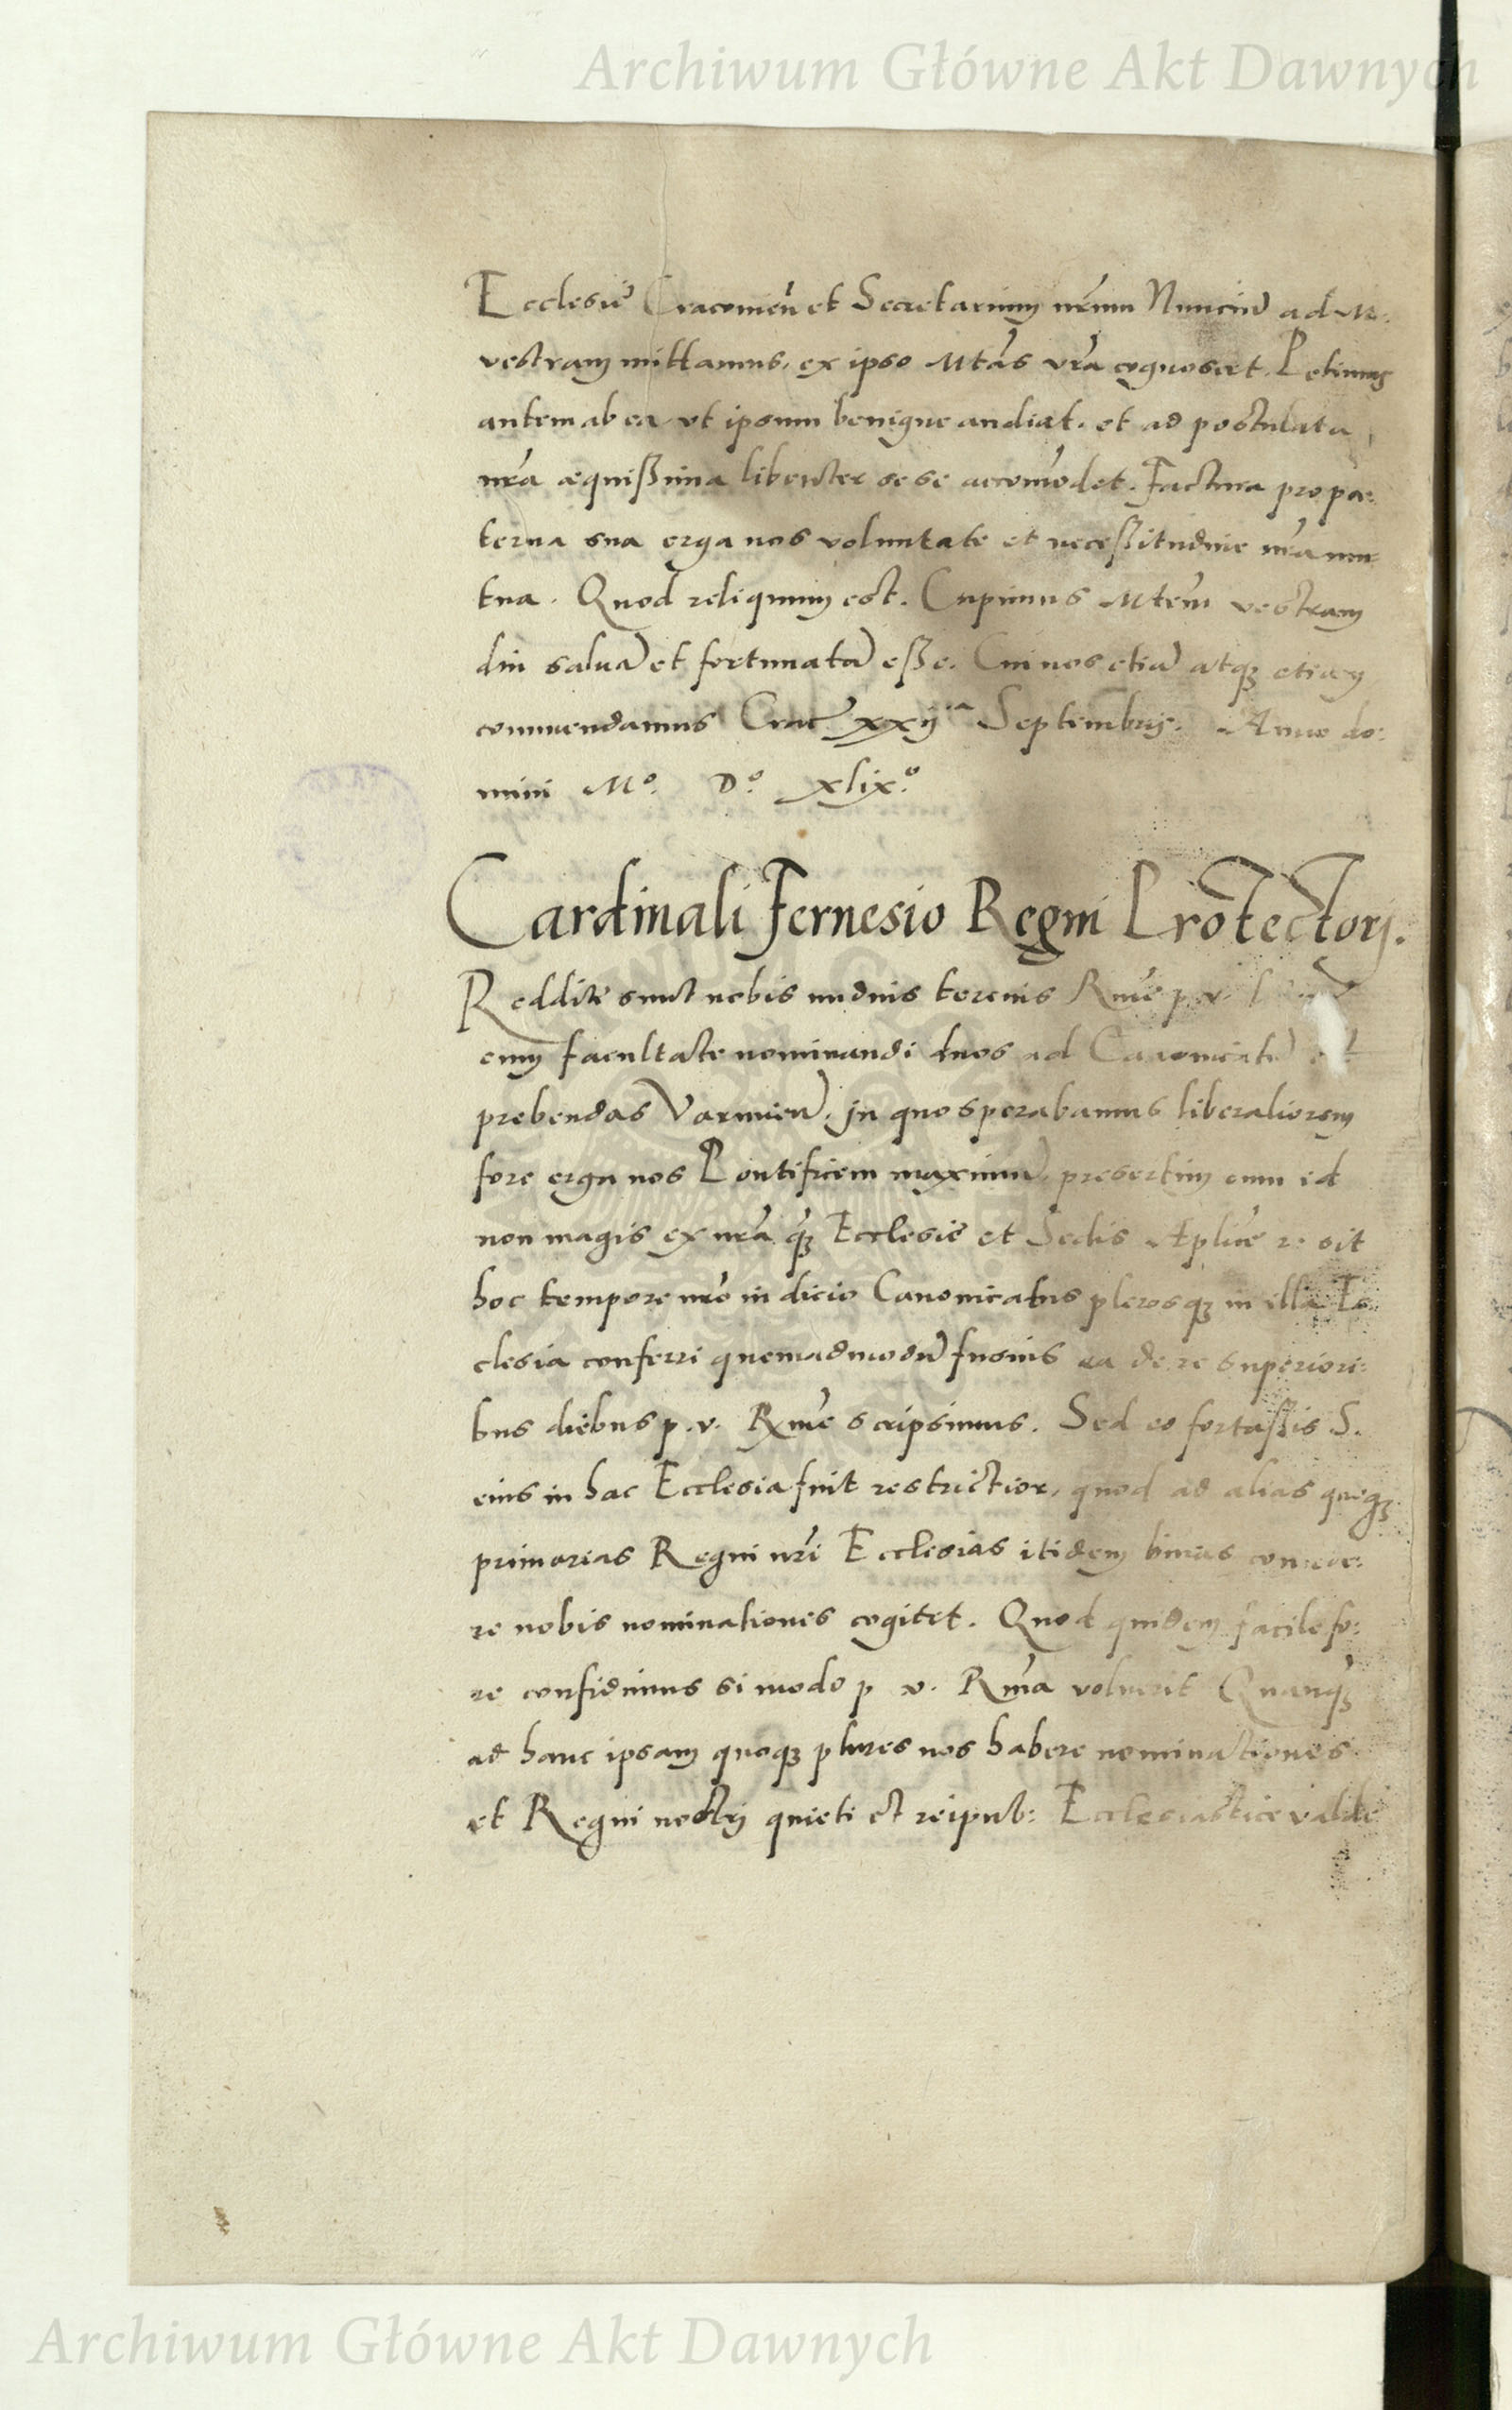 Archiwum Główne Akt Dawnych
Ecclesię Cracouien̄ et Secretarium nr̃um Nunciũ ad M.
vestram mittamus, ex ipso Mtas vr̃a cognoscet. Petimus
autem ab ea vt ipsum benigne audiat, et ad postulata
nr̃a æquißima libenter sese accom̃odet. Factura pro pa:
terna sua erga nos voluntate et neceßitudine nr̃a mu
tua. Quod reliquum est. Cupimus Mtem̃ vestram
diu saluã et fortunatã eße. Cui nos etiã atq₃ etiam
commendamus Crac̃ xxijᵃ Septembris. Anno do:
mini Mᵒ. Dᵒ. xlixᵒ.
Cardinali Fernesio Regni Protectorj.
Redditę sunt nobis nudius tercius Rmẽ p. v.
cum facultate nominandi duos ad Canonicatũ et
prebendas Varmien̄. in quo sperabamus liberaliorem
fore erga nos Pontificem maximũ, presertim cum id
non magis ex nr̃a q̃₃ Ecclesię et Sedis Ap̃licę re sit
hoc tempore nr̃o iudicio Canonicatus plerosq₃ in illa Ec
clesia conferri quemadmodũ fusius ea de re superiori:
bus diebus p. v. Rmẽ scripsimus. Sed eo fortaßis S.
eius in hac Ecclesia fuit restrictior, quod ad alias queq₃
primarias Regni nr̃i Ecclesias itidem binas concede:
re nobis nominationes cogitet. Quod quidem facile fo:
re confidimus si modo p v. Rmã voluerit Quanq̃₃
ad hanc ipsam quoq₃ plures nos habere nominationes
et Regni nostrj quieti et reipub: Ecclesiasticę valde
Archiwum Główne Akt Dawnych